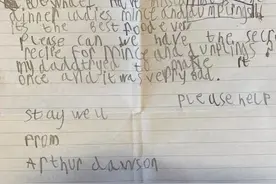 dinner ladies mince and dumplings
its the best food ever
Please can we have the secret
recipe for mince and dumplings
my dad tryed to make it
once and it was very bad.
please help
stay well
From
Arthur dawson